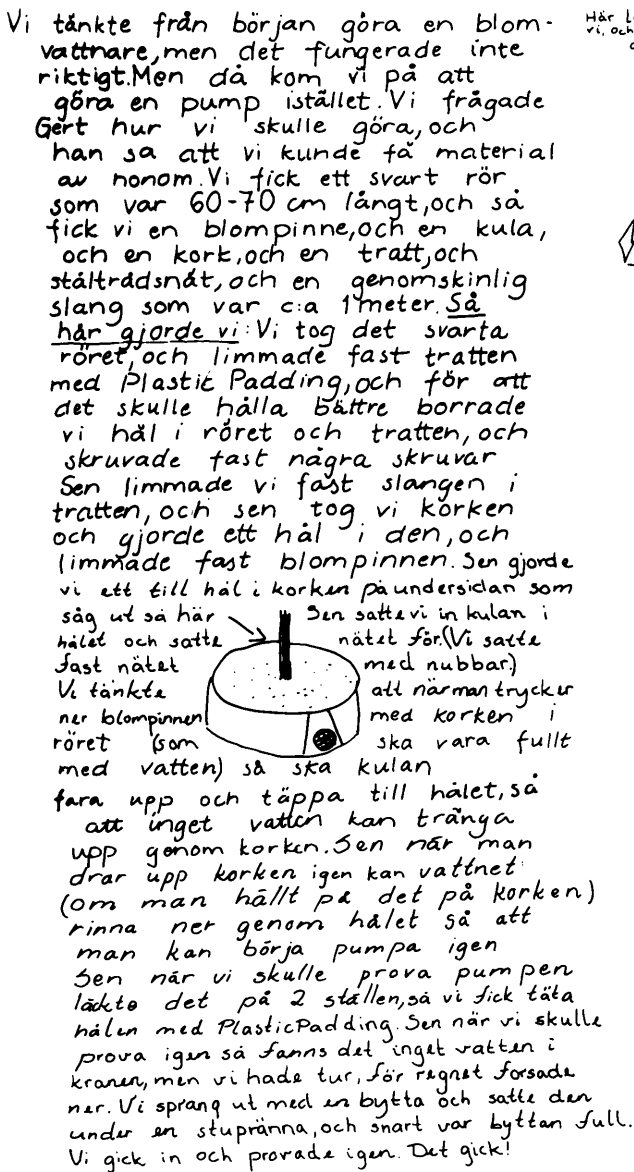 Vi tänkte från början göra en blom-
vattnare, men det fungerade inte
riktigt. Men då kom vi på att
göra en pump istället. Vi frågade
Gert hur vi skulle göra, och
han sa att vi kunde få material
av nonom. Vi fick ett svart rör
som var 60-70 cm långt, och så
fick vi en blompinne, och en kula,
och en kork, och en tratt, och
ståltrådsnät, och en genomskinlig
slang som var c:a 1 meter. Så
här gjorde vi: Vi tog det svarta
röret, och limmade fast tratten
med Plastic Padding, och för att
det skulle hålla bättre borrade
vi hål i röret och tratten, och
skruvade fast några skruvar
Sen limmade vi fast slangen i
tratten, och sen tog vi korken
och gjorde ett hål i den, och
limmade fast blompinnen. Sen gjorde
vi ett till hål i korken på undersidan som
såg ut så här Sen satte vi in kulan i
hålet och satte nätet för. (Vi satte
fast nätet med nubbar)
Vi tänkte att när man trycker
ner blompinnen med korken i
röret (som ska vara fullt
med vatten) så ska kulan
fara upp och täppa till hålet, så
att inget vatten kan tränga
upp genom korken. Sen när man
drar upp korken igen kan vattnet
(om man hällt på det på korken)
rinna ner genom hålet så att
man kan börja pumpa igen
Sen när vi skulle prova pumpen
läckte det på 2 ställen, så vi fick täta
hålen med Plastic Padding. Sen när vi skulle
prova igen så fanns det inget vatten i
kranen, men vi hade tur, för regnet forsade
ner. Vi sprang ut med en bytta och satte den
under en stupränna, och snart var byttan full.
Vi gick in och provade igen. Det gick!
Här
vi, och